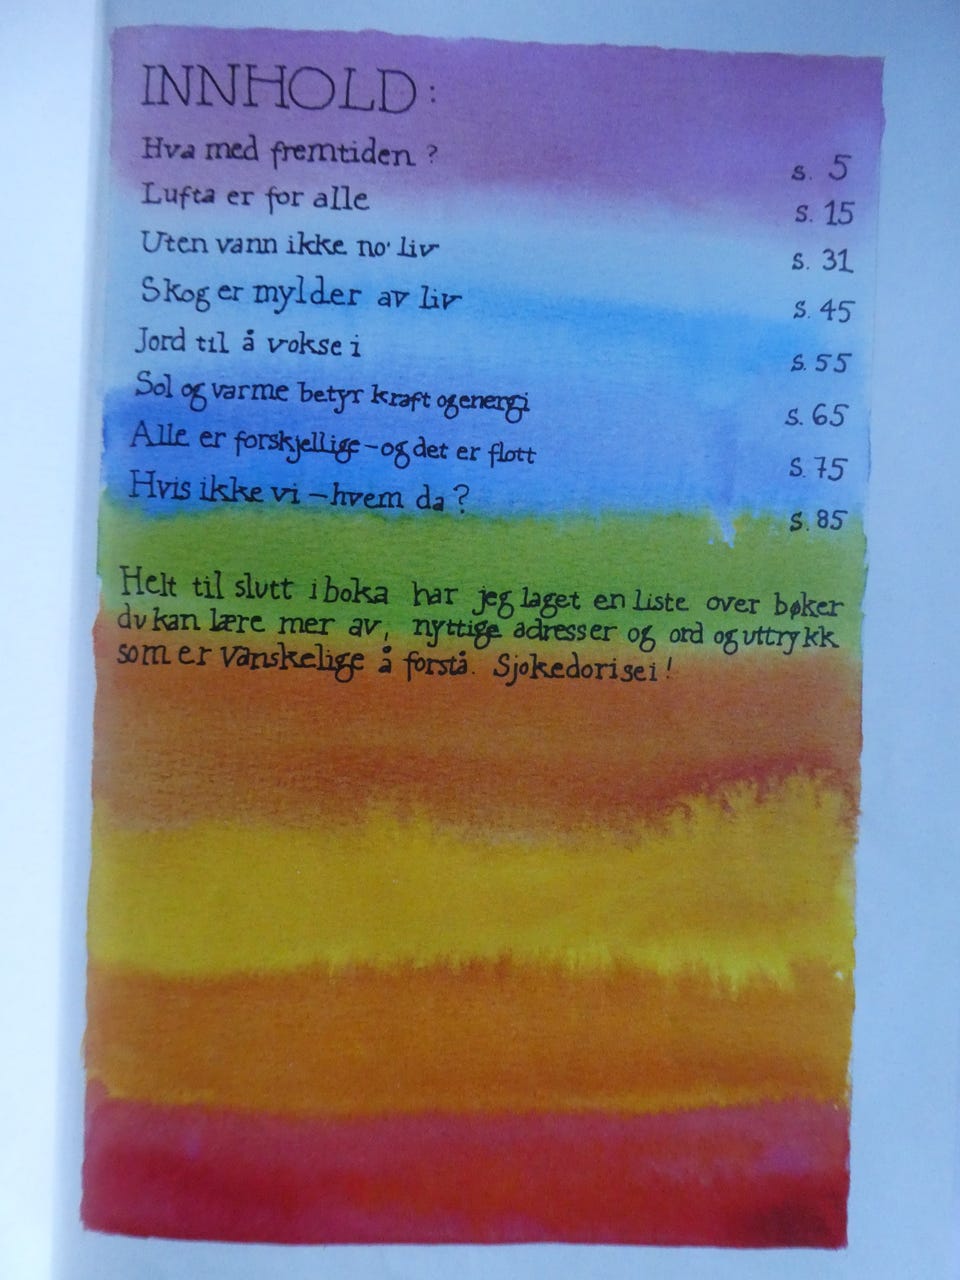 INNHOLD:
Hva med fremtiden? s. 5
Lufta er for alle s. 15
Uten vann ikke no' liv s. 31
Skog er mylder av liv s. 45
Jord til å vokse i s. 55
Sol og varme betyr kraft og energi s. 65
Alle er forskjellige – og det er flott s. 75
Hvis ikke vi – hvem da? s. 85
Helt til slutt i boka har jeg laget en liste over bøker
du kan lære mer av, nyttige adresser og ord og uttrykk
som er vanskelige å forstå. Sjokedorisei!